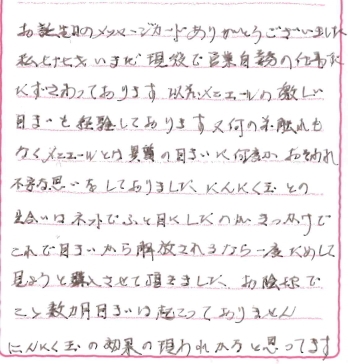 お誕生日のメッセージカードありがとうございました
私七十七才いまだ現役で営業自務の仕事に
たずさわっております 以前メニエールの激しい
目まいも経験しております 又何の前触れも
なくメニエールとは異質の目まいに何度か おそわれ
不安な思いをしておりましたが、にんにく玉との
出会いはネットでふと目にしたのがきっかけで
これで目まいから解放されるなら一度ためして
見ようと購入させて頂きましたが、お陰様で
ここ数カ月目まいは起こっておりません
にんにく玉の効果の現われかなと思ってます